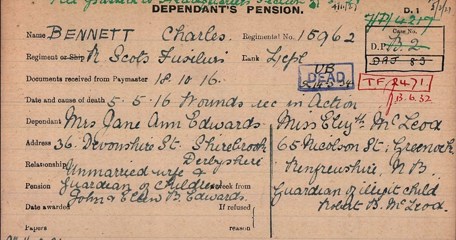 DEPENDANT'S PENSION. D. 1
Name BENNETT Charles. Regimental No. 15962
Case No.
Regiment or Ship R Scots Fusiliers Rank L/cpl D.P. B.2
DEAD
Documents received from Paymaster 18.10.16. T.F. 2471
13.6.32
Date and cause of death 5.5.16 Wounds rec in Action
Dependant Mrs Jane Ann Edwards Miss Elizth McLeod
Address 36. Devonshire St. Shirebrook 65 Nicolson St; Greenock
Derbyshire Renfrewshire, N.B.
Relationship Unmarried wife & Guardian of illegit child
Pension Guardian of children week from Robert B. McLeod.
John & Ellen B. Edwards.
Date awarded If refused
Date of